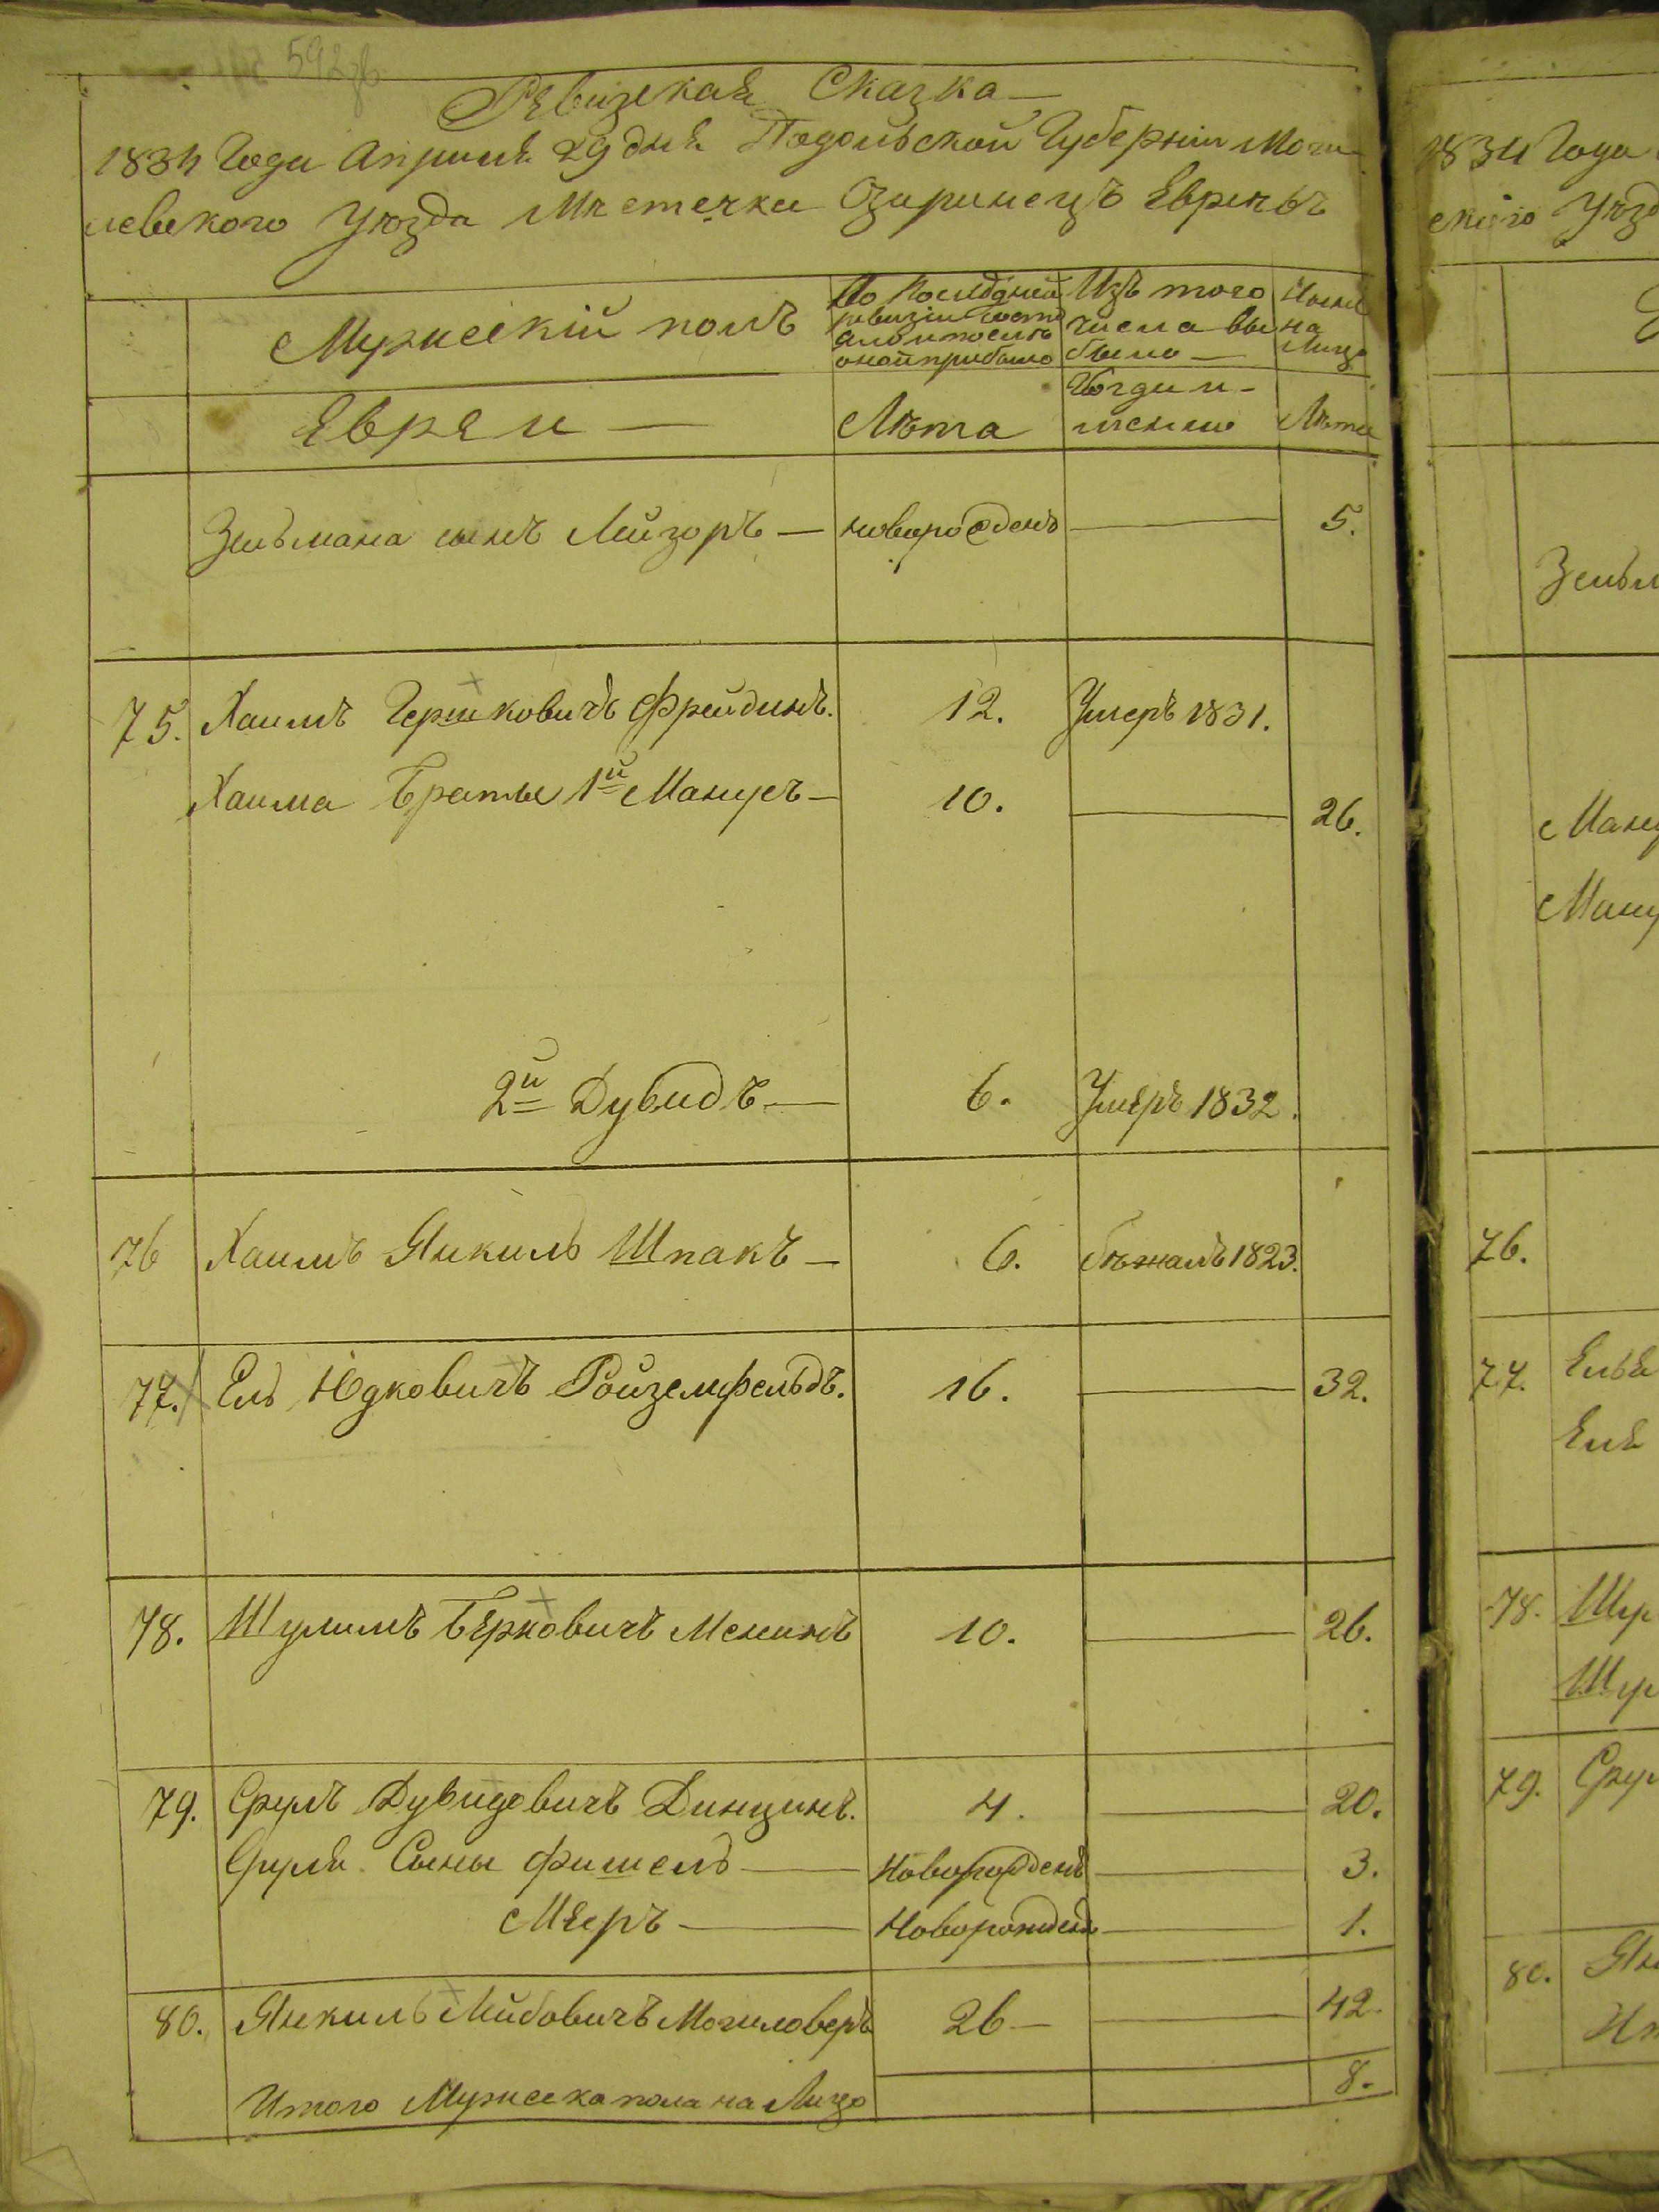 592
Ревизская Сказка —
1834 Года Апреля 29 дня Подольской Губерніи Моги
левского Уезда Местечка Озаринецъ Евреевъ
Мужескій полъ
По последней ревизіи состо яло и после оной прибыло
Изъ того числа вы было —
Ныне на Лицо
Евреи —
Лета
Когда и-менно
Лета
Зельмана сынъ Лейзоръ — новорожденъ — 5.
75. Хаимъ Гершковичъ Фрейдинъ. 12. Умеръ 1831.
Хаима Браты 1й Манусъ — 10. — 26.
2й Дувидъ — 6. Умеръ 1832.
76 Хаимъ Янкиль Шпакъ — 6. бежалъ 1823.
77. Ель Юдковичъ Ройземфельдъ. 16. — 32.
78. Шулимъ Берковичъ Менинъ 10. — 26.
79. Срулъ Дувидовичъ Динцинъ. 4. — 20.
Сруля Сыны Фишель — Новорожденъ — 3.
Мееръ — Новорожденъ — 1.
80. Янкиль Лейбовичъ Могиловеръ 26 — — 42.
Итого Мужеска пола на Лицо 8.
1834 Года
ского Уезд
Зельм
Ману
Ману
76.
77. Еля
Еля
78. Шул
Шул
79. Срул
80. Ян
Ит